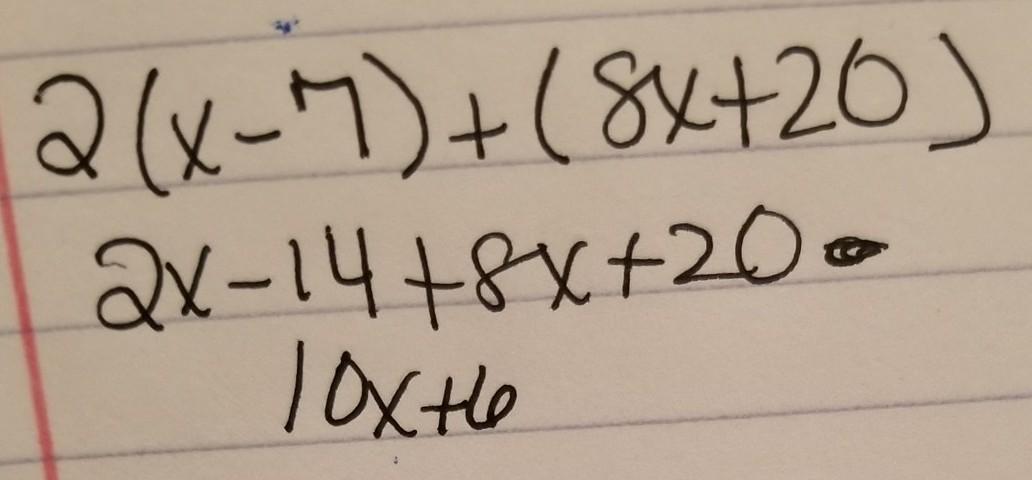 2(x-7)+(8x+20)
2x-14+8x+20
10x+6